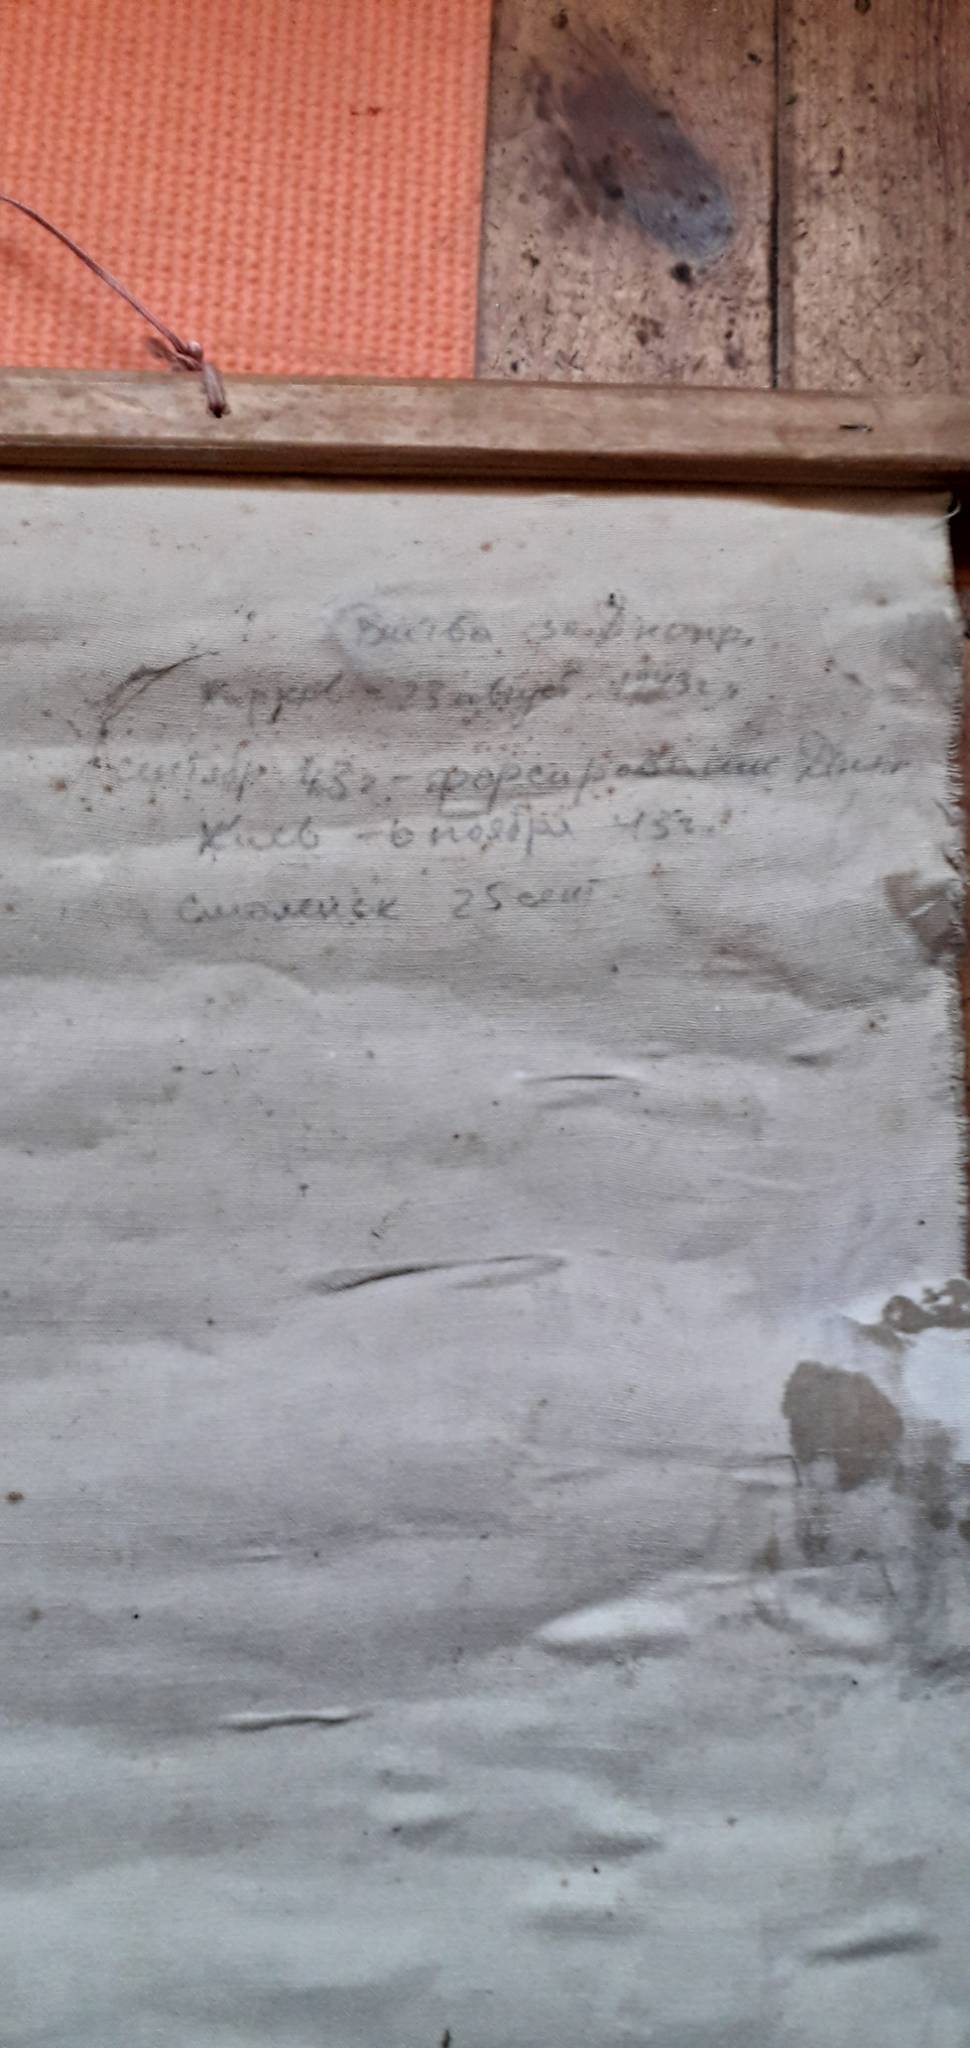 Битва за Днепр.
Харьков - 23 август 1943г.
сентябр 43г - форсирование Днеп
Киев - 6 ноября 43г.
Смоленск 25 сент